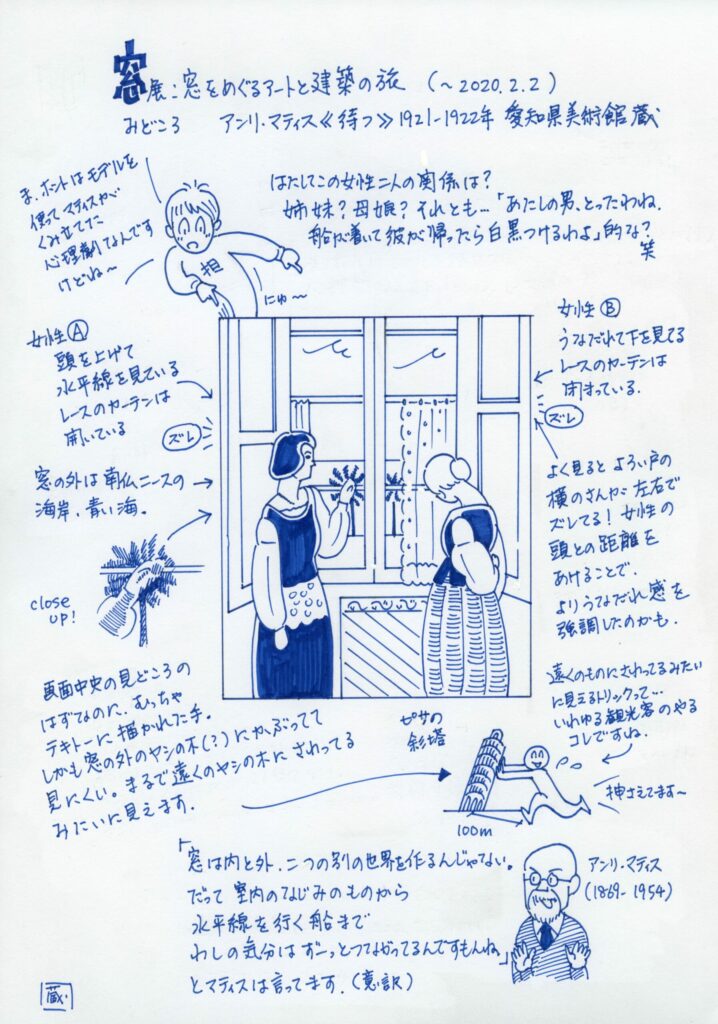 窓展:窓をめぐるアートと建築の旅 (~2020.2.2)
みどころ アンリ・マティス《待つ》1921-1922年 愛知県美術館蔵
はたしてこの女性二人の関係は?
姉妹?母娘?それとも…「あたしの男、とったわね。
船が着いて彼が帰ったら白黒つけるわよ」的な?
笑
ま、ホントはモデルを
使ってマティスが
くみ立てた
心理劇なんです
けどね〜
担
にゅ〜
女性Ⓐ
頭を上げて
水平線を見ている
レースのカーテンは
開いている
ズレ
窓の外は南仏ニースの
海岸、青い海。
close
up!
女性Ⓑ
うなだれて下を見てる
レースのカーテンは
閉まっている。
ズレ
よく見ると よろい戸の
横のさんが左右で
ズレてる!女性の
頭との距離を
あけることで、
よりうなだれ感を
強調したのかも。
画面中央の見どころの
はずなのに、むっちゃ
テキトーに描かれた手。
しかも窓の外のヤシの木(?)にかぶってて
見にくい。まるで遠くのヤシの木にさわってる
みたいに見えます。
遠くのものにさわってるみたい
に見えるトリックって…
いわゆる観光客のやる
コレですね。
ピサの
斜塔
100m
押さえてます〜
「窓は内と外、二つの別の世界を作るんじゃない。
だって 室内のなじみのものから
水平線を行く船まで
わしの気分はずーっとつながってるんですもんね」
とマティスは言ってます。(意訳)
アンリ・マティス
(1869-1954)
蔵